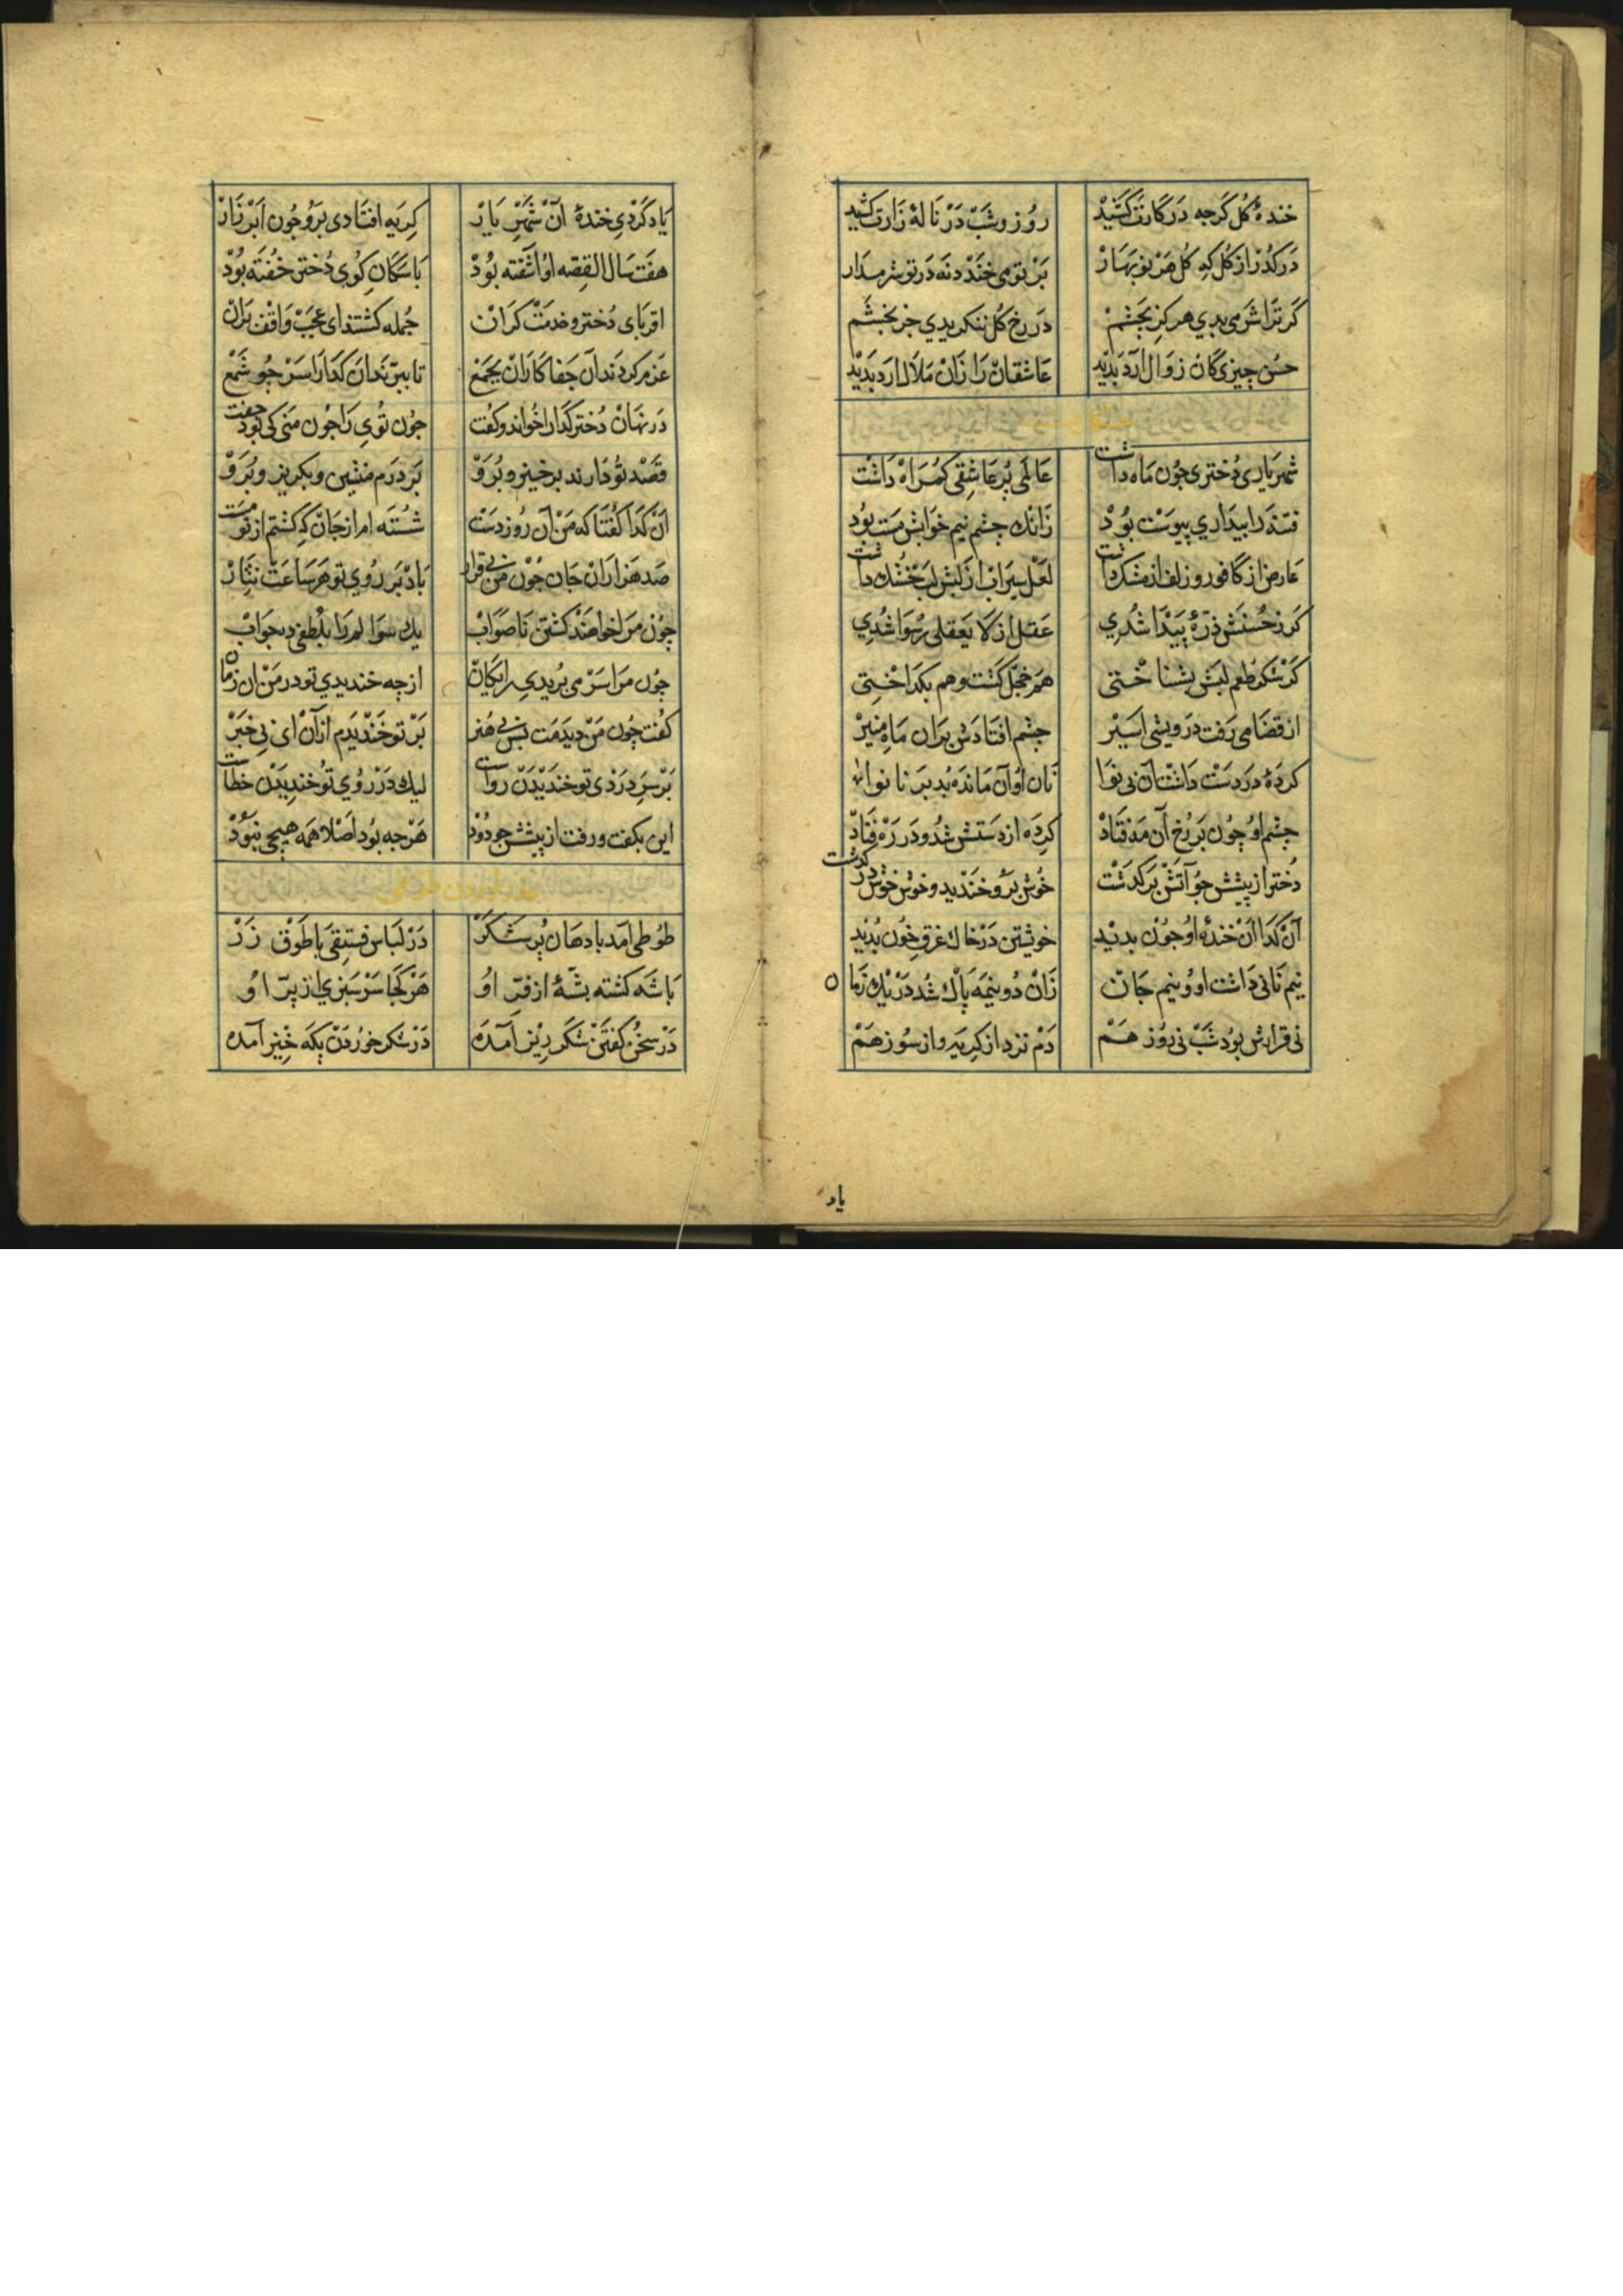 خندهٔ گل گرچه در کارت کشید روز و شب در نالهٔ زارت کشید
درگذر از گل که گل هر نوبهار بر تو می خندد نه در تو شرم دار
گر ترا شرمی بدی هرگز بخشم در رخ گل ننگریدی جز بخشم
حسن چیزی کان زوال آرد بدید عاشقان را زان ملال ارد بدید
شهریاری دختری چون ماه داشت عالمی پر عاشقی گمراه داشت
فتنه را بیداری پیوست بود زانک چشم نیم خوابش مست بود
عارض از کافور و زلف از مشک داشت لعل سیراب از لبش لب خشک داشت
گر ز حسنش ذرهٔ پیدا شدی عقل از لا یعقلی رسوا شدی
گر شکر طعم لبش بشناختی هم خجل گشت و هم بگداختی
از قضا می رفت درویشی اسیر چشم افتادش بران ماه منیر
گردهٔ در دست داشت آن بی نوا نان او آن مانده بد بر نانوا
چشم او چون بر رخ آن مه فتاد گرده از دستش شد و در ره فتاد
دختر از پیشش چو آتش برگذشت خوش برو خندید و خوش خوش درگذشت
آن گدا آن خندهٔ او چون بدید خویشتن در خاک غرق خون بدید
نیم نانی داشت او و نیم جان زان دو نیمه پاک شد در یک زمان
نی قرارش بود شب نی روز هم دم نزد از گریه و از سوز هم
یاد
یاد کردی خندهٔ آن شهریار گریه افتادی برو چون ابر زار
هفت سال القصه او اشفته بود با سگان کوی دختر خفته بود
اقربای دختر و خدمت گران جمله گشتند ای عجب واقف بران
عزم کردند آن جفا کاران بجمع تا ببرند ان گدا را سر چو شمع
در نهان دختر گدا را خواند و گفت چون توی را چون منی کی بود جفت
قصد تو دارند برخیز و برو بر درم منشین و بگریز و برو
آن گدا گفتا که من آن روز دست شسته ام از جان که گشتم از تو مست
صد هزاران جان چون من بی قرار باد بر روی تو هر ساعت نثار
چون مرا خواهند کشتن ناصواب یک سوالم را بلطفی ده جواب
چون مرا سر می بریدی رایگان ازچه خندیدی تو در من ان زمان
گفت چون من دیدمت بس بی هنر بر تو خندیدم ازآن ای بی خبر
بر سر در ذی تو خندیدن رواست لیک در روی تو خندیدن خطاست
این بگفت و رفت از پیشش چو دود هرچه بود اصلا همه هیچی نبود
طوطی آمد با دهان پر شکر در لباس فستقی با طوق زر
باشه گشته بشهٔ از فر او هر کجا سرسبزی از پر او
در سخن گفتن شکر ریز آمده در شکر خوردن پگه خیز آمده